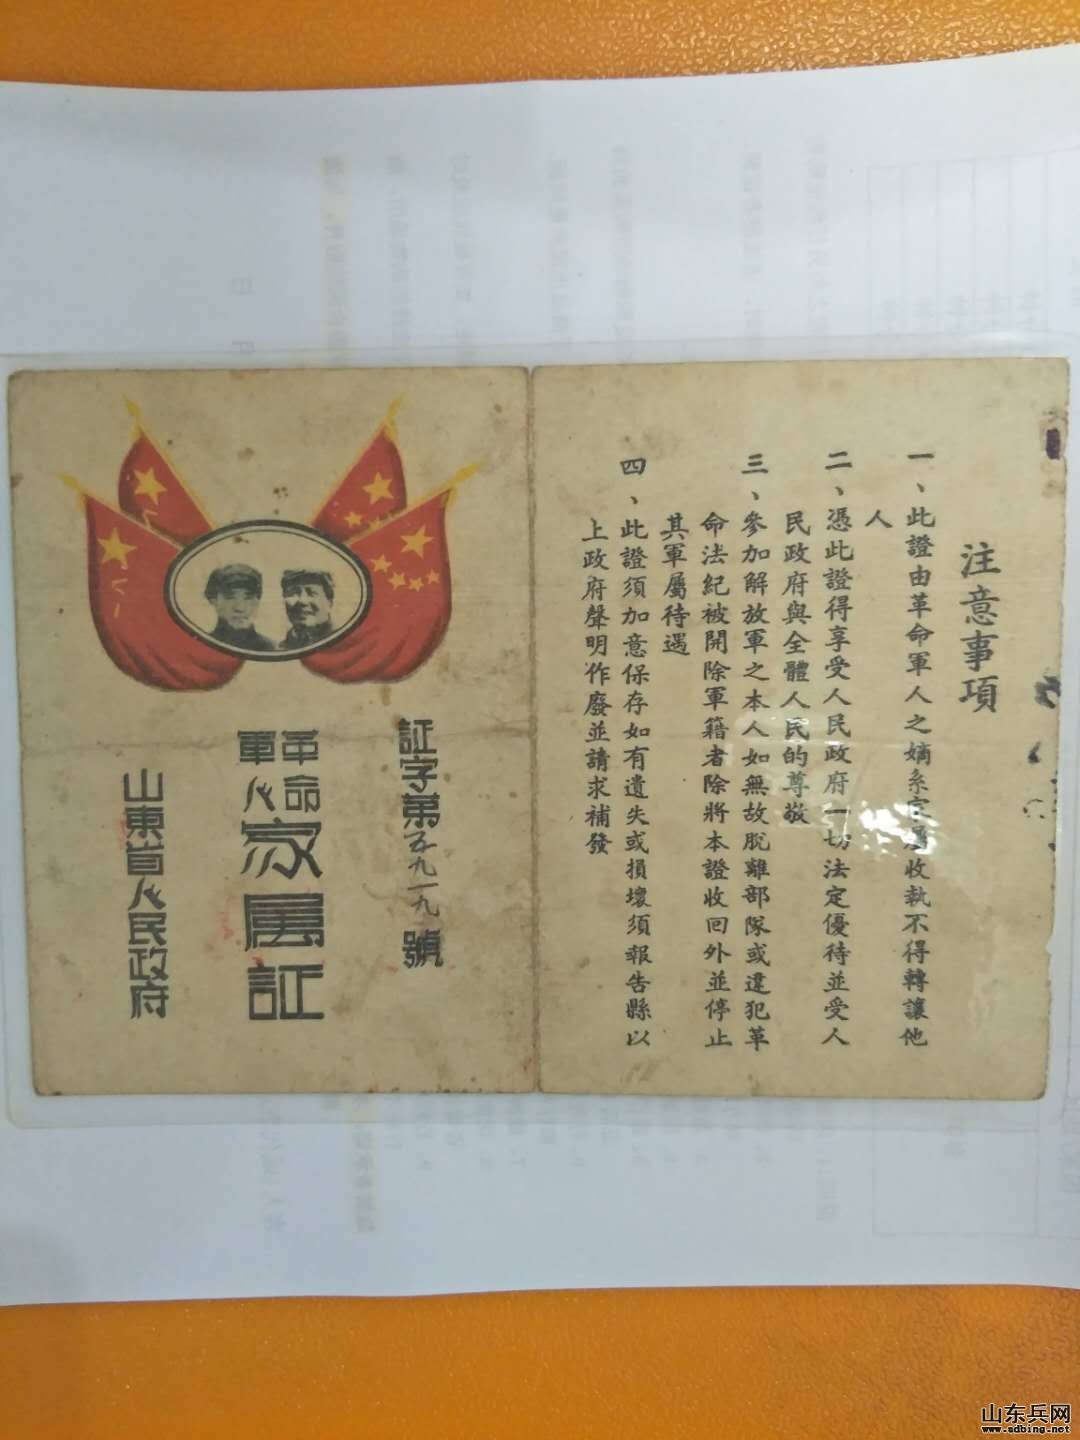 注意事項
一、此證由革命軍人之嫡系家屬收執不得轉讓他
人
二、憑此證得享受人民政府一切法定優待並受人
民政府與全體人民的尊敬
三、參加解放軍之本人如無故脫離部隊或違犯革
命法紀被開除軍籍者除將本證收回外並停止
其軍屬待遇
四、此證須加意保存如有遺失或損壞須報告縣以
上政府聲明作廢並請求補發
証字第五九一九號
革命
軍人
家屬証
山東省人民政府
山东兵网
www.sdbing.net